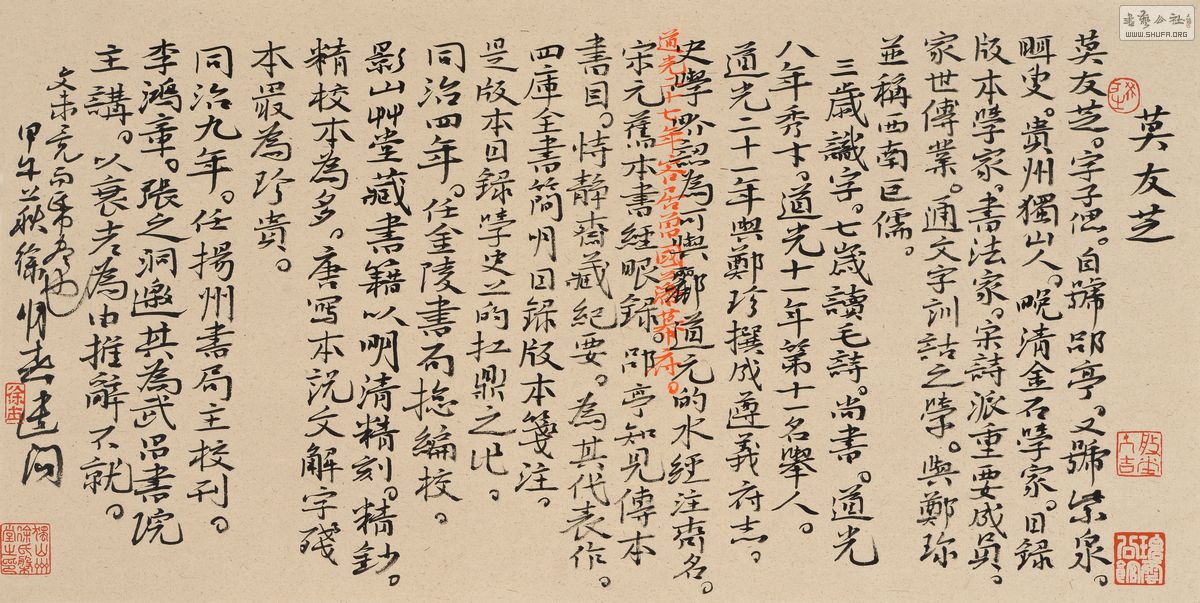 莫友芝
莫友芝。字子偲。自號郘亭。又號紫泉。
眲叟。貴州獨山人。晚清金石學家。目錄
版本學家。書法家。宋詩派重要成員。
家世傳業。通文字訓詁之學。與鄭珍
並稱西南巨儒。
三歲識字。七歲讀毛詩。尚書。道光
八年秀才。道光十一年第十一名舉人。
道光二十一年與鄭珍撰成遵義府志。
史學界認為可與酈道元的水經注齊名。
道光二十七年客居曾國藩幕府。
宋元舊本書經眼錄。郘亭知見傳本
書目。恃靜齋藏紀要。為其代表作。
四庫全書簡明目錄版本箋注。
是版本目錄學史上的扛鼎之作。
同治四年。任金陵書局總編校。
影山艸堂藏書籍以明清精刻。精鈔。
精校本為多。唐寫本說文解字殘
本最為珍貴。
同治九年。任揚州書局主校刊。
李鴻章。張之洞邀其為武昌書院
主講。以衰老為由推辭不就。
文未竟而紙盡也
甲午荻徐
書藝公社
WWW.SHUFA.ORG